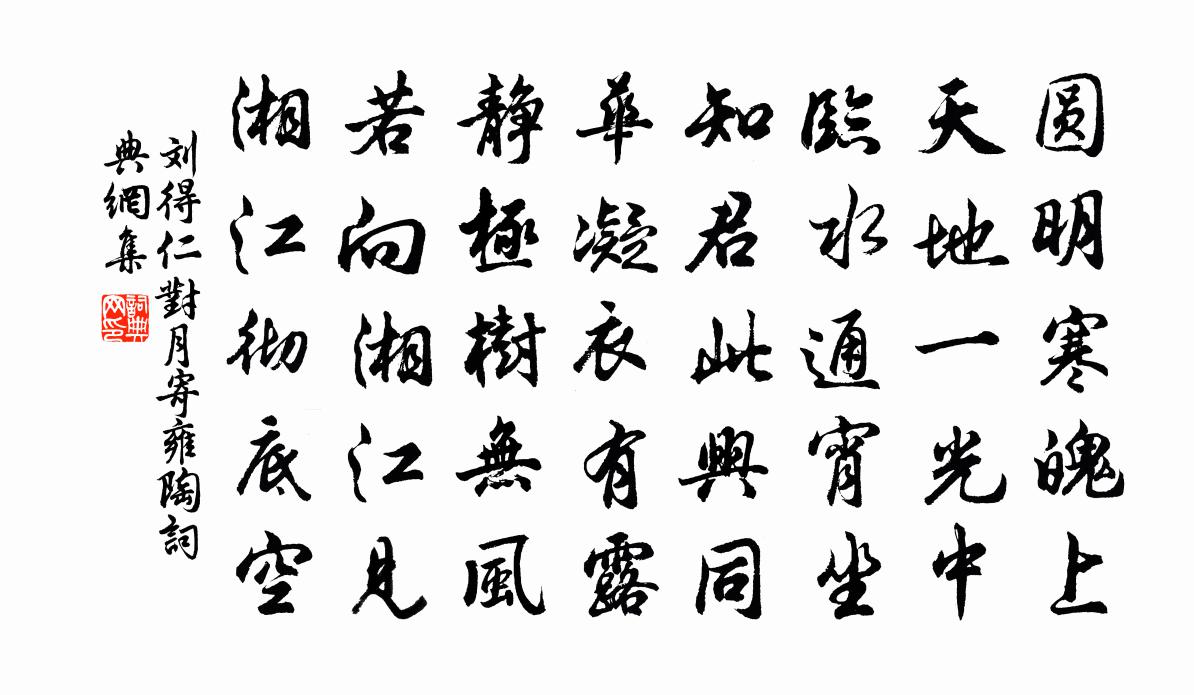 圆明寒魄上
天地一光中
臨水通宵坐
知君此興同
華凝衣有露
静極樹無風
若向湘江見
湘江彻底空
刘得仁對月寄雍陶詞
典網集
詞典
网印